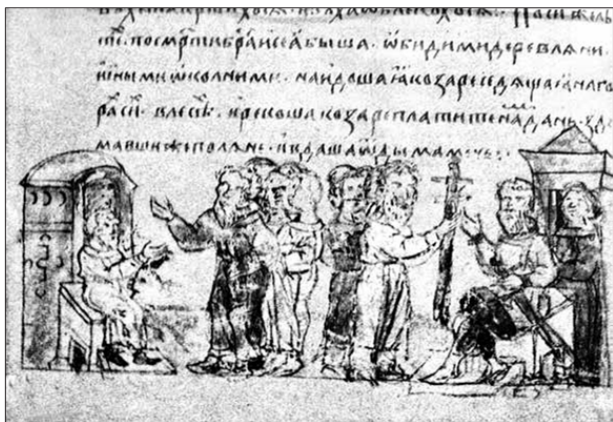 По сиⷯ же лѣ
тѣ. по смр҃ти браⷮи сеѧ быша. ѡбидими деревлѧни.
иными ѡколними. наидоша ѧ козаре седѧщаѧ на го
раⷯ сиⷯ. в лесѣⷯ. и рекоша козаре платите наⷨ дань. зду
мавши же полѧне. и вдаша ѿ дыма мечь